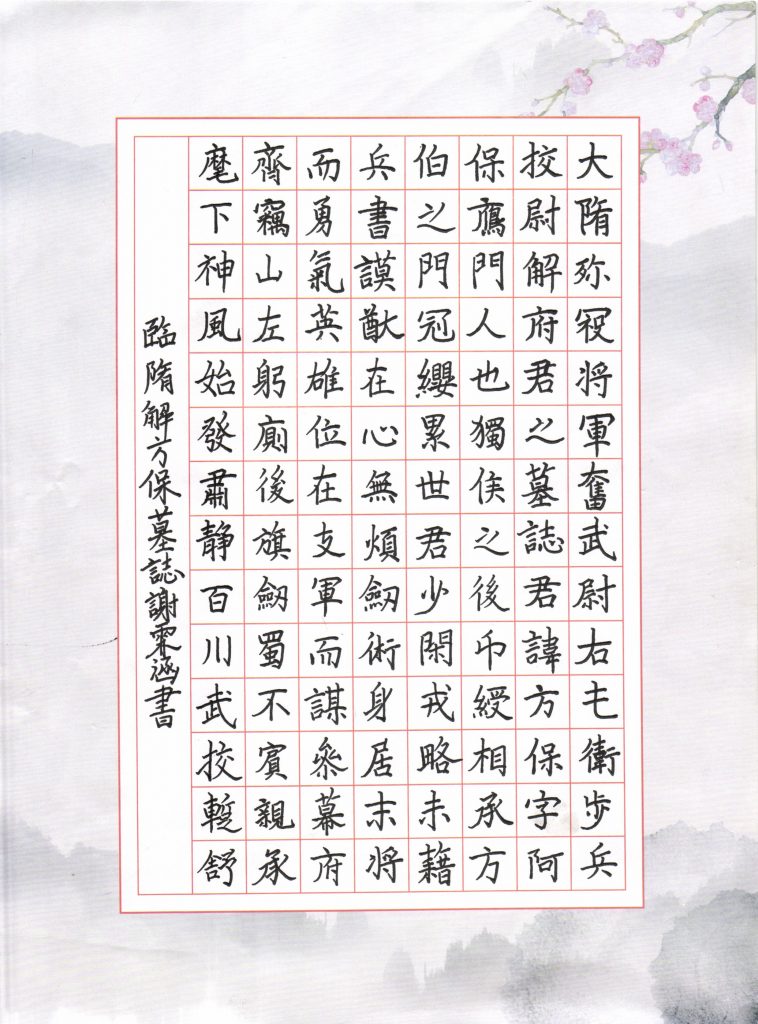 大隋弥寇将军奮武尉右乇衛步兵
挍尉解府君之墓誌君諱方保字阿
保鴈門人也獨侯之後印綬相承方
伯之門冠纓累世君少閑戎略未藉
兵書謨猷在心無煩劒術身居末將
而勇氣英雄位在支軍而謀叅幕府
齊竊山左躬廁後旗劒蜀不賓親承
麾下神風始發肅静百川武挍蹔舒
臨隋解方保墓誌謝霂涵書